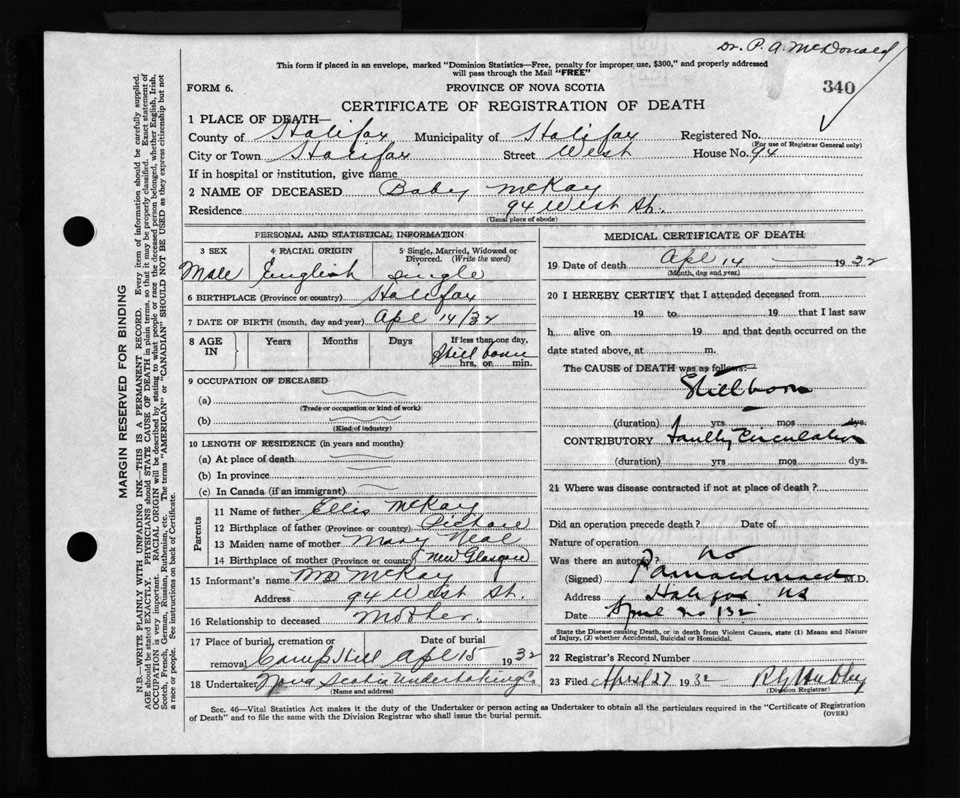 Dr. P. A. McDonald
This form if placed in an envelope, marked "Dominion Statistics—Free, penalty for improper use, $300," and properly addressed
will pass through the Mail "FREE"
340
FORM 6.
PROVINCE OF NOVA SCOTIA
CERTIFICATE OF REGISTRATION OF DEATH
1 PLACE OF DEATH—
County of Halifax Municipality of Halifax Registered No.
(For use of Registrar General only)
City or Town Halifax Street West House No. 94
If in hospital or institution, give name
2 NAME OF DECEASED Baby McKay
Residence 94 West St.
(Usual place of abode)
PERSONAL AND STATISTICAL INFORMATION
3 SEX 4 RACIAL ORIGIN 5 Single, Married, Widowed or
Divorced. (Write the word)
Male English single
6 BIRTHPLACE (Province or country) Halifax
7 DATE OF BIRTH (month, day and year) Apl 14/32
8 AGE IN Years Months Days If less than one day,
Still born
hrs. or min.
9 OCCUPATION OF DECEASED
(a)
(Trade or occupation or kind of work)
(b)
(Kind of industry)
10 LENGTH OF RESIDENCE (in years and months)
(a) At place of death
(b) In province
(c) In Canada (if an immigrant)
Parents
11 Name of father Ellis McKay
12 Birthplace of father (Province or country)
13 Maiden name of mother Mary Neal
14 Birthplace of mother (Province or country) New Glasgow
15 Informant's name Mrs McKay
Address 94 West St.
16 Relationship to deceased Mother.
17 Place of burial, cremation or Date of burial
removal Camp Hill Apl 15 1932
18 Undertaker Nova Scotia Undertaking Co
(Name and address)
MEDICAL CERTIFICATE OF DEATH
19 Date of death Apl 14 1932
(Month, day and year)
20 I HEREBY CERTIFY that I attended deceased from
19 to 19 that I last saw
h alive on 19 and that death occurred on the
date stated above, at m.
The CAUSE of DEATH was as follows:
Stillborn
(duration) yrs mos dys.
CONTRIBUTORY faulty Circulation
(duration) yrs mos dys.
21 Where was disease contracted if not at place of death?
Did an operation precede death? Date of
Nature of operation
Was there an autopsy? no
(Signed) P A Macdonald M.D.
Address Halifax NS
Date April 32
State the Disease causing Death, or in death from Violent Causes, state (1) Means and Nature
of Injury, (2) whether Accidental, Suicidal or Homicidal.
22 Registrar's Record Number
23 Filed April 27 1932 Hubley
(Division Registrar)
Sec. 46—Vital Statistics Act makes it the duty of the Undertaker or person acting as Undertaker to obtain all the particulars required in the "Certificate of Registration
of Death" and to file the same with the Division Registrar who shall issue the burial permit.
(OVER)
MARGIN RESERVED FOR BINDING
N.B.—WRITE PLAINLY WITH UNFADING INK—THIS IS A PERMANENT RECORD. Every item of information should be carefully supplied.
AGE should be stated EXACTLY. PHYSICIANS should STATE CAUSE OF DEATH in plain terms, so that it may be properly classified. Exact statement of
OCCUPATION is very important. RACIAL ORIGIN will be described by stating to what people or race the deceased person belonged, whether English, Irish,
Scotch, French, German, Russian, Ruthenian, etc. The terms "AMERICAN" or "CANADIAN" SHOULD NOT BE USED as they express citizenship but not
a race or people. See instructions on back of Certificate.